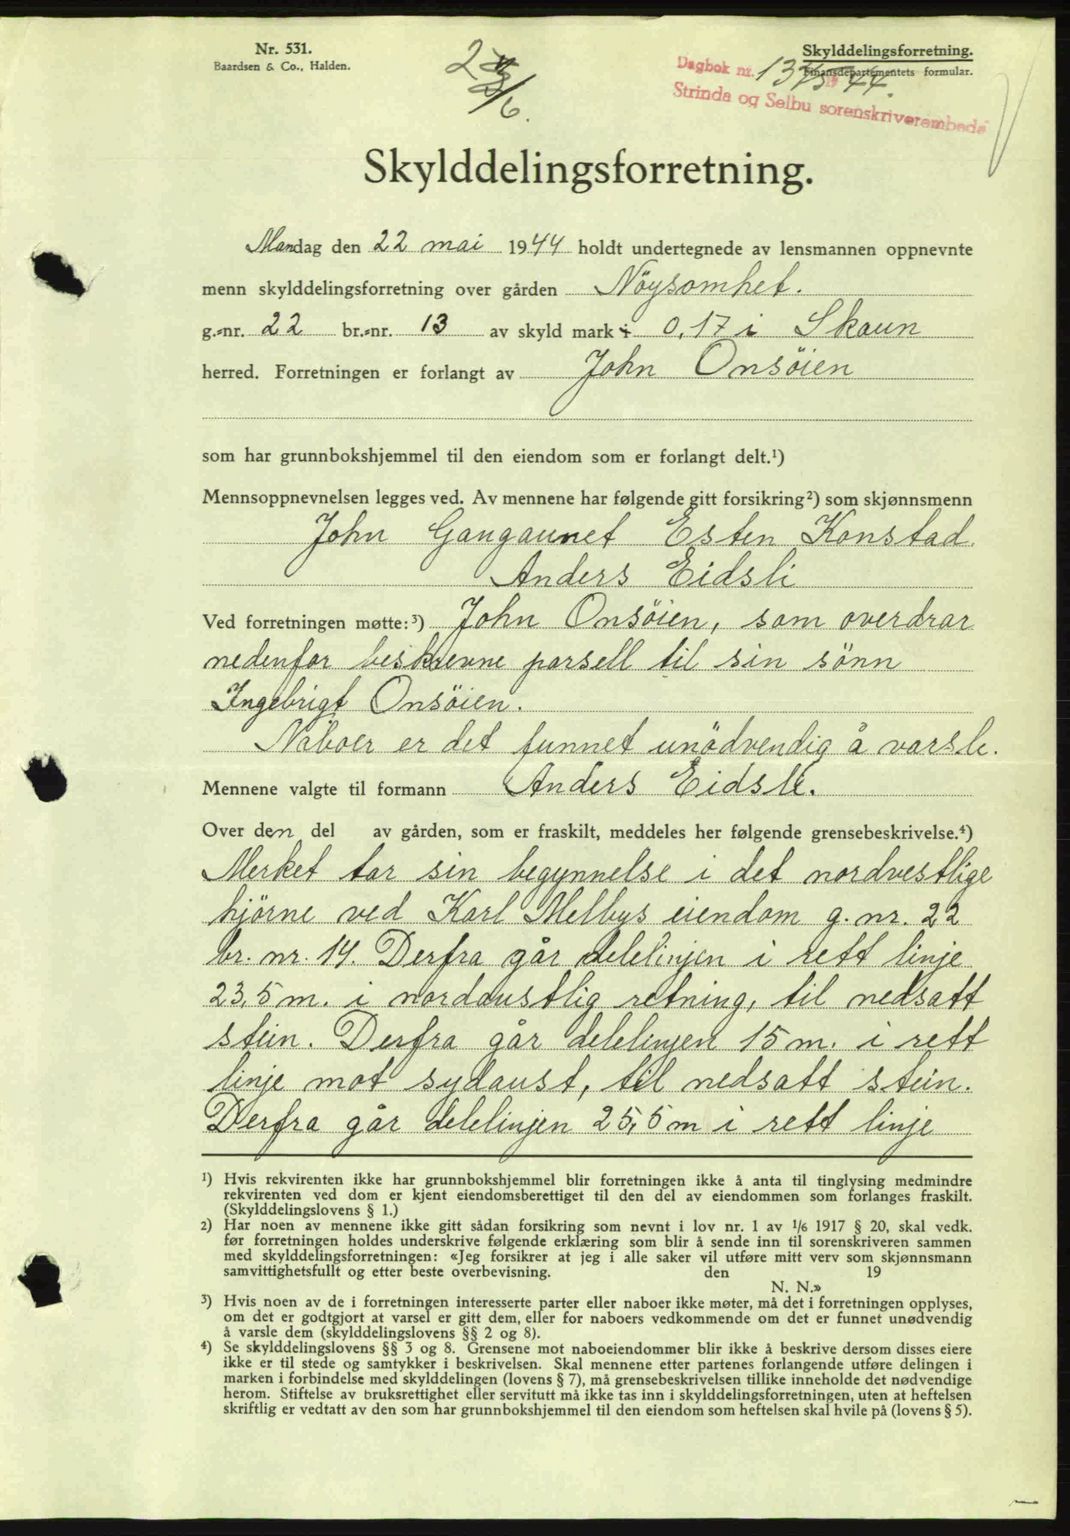 Nr. 531.
Baardsen & Co., Halden.
Skylddelingsforretning.
Finansdepartementets formular.
Dagbok nr.
Strinda og Selbu sorenskriverembede
Skylddelingsforretning.
Mandag den 22 mai 1944 holdt undertegnede av lensmannen oppnevnte
menn skylddelingsforretning over gården Nöysomhet.
g.-nr. 22 br.-nr. 13 av skyld mark 0,17 i Skaun
herred. Forretningen er forlangt av John Onsöien
som har grunnbokshjemmel til den eiendom som er forlangt delt.¹)
Mennsoppnevnelsen legges ved. Av mennene har følgende gitt forsikring²) som skjønnsmenn
John Gangaunet Esten Konstad.
Anders Eidsli
Ved forretningen møtte:³) John Onsöien, som overdrar
nedenfor beskrevne parsell til sin sönn
Ingebrigt Onsöien.
Naboer er det funnet unödvendig å varsle.
Mennene valgte til formann Anders Eidsli.
Over den del av gården, som er fraskilt, meddeles her følgende grensebeskrivelse.⁴)
Merket tar sin begynnelse i det nordvestlige
hjörne ved Karl Melbys eiendom g. nr. 22
br. nr. 14. Derfra går delelinjen i rett linje
23,5 m. i nordaustlig retning, til nedsatt
stein. Derfra går delelinjen 15 m. i rett
linje mot sydaust, til nedsatt stein.
Derfra går delelinjen 25,5 m i rett linje
¹) Hvis rekvirenten ikke har grunnbokshjemmel blir forretningen ikke å anta til tinglysing medmindre
rekvirenten ved dom er kjent eiendomsberettiget til den del av eiendommen som forlanges fraskilt.
(Skylddelingslovens § 1.)
²) Har noen av mennene ikke gitt sådan forsikring som nevnt i lov nr. 1 av 1/6 1917 § 20, skal vedk.
før forretningen holdes underskrive følgende erklæring som blir å sende inn til sorenskriveren sammen
med skylddelingsforretningen: «Jeg forsikrer at jeg i alle saker vil utføre mitt verv som skjønnsmann
samvittighetsfullt og etter beste overbevisning. den 19
N. N.»
³) Hvis noen av de i forretningen interesserte parter eller naboer ikke møter, må det i forretningen opplyses,
om det er godtgjort at varsel er gitt dem, eller for naboers vedkommende om det er funnet unødvendig
å varsle dem (skylddelingslovens §§ 2 og 8).
⁴) Se skylddelingslovens §§ 3 og 8. Grensene mot naboeiendommer blir ikke å beskrive dersom disses eiere
ikke er til stede og samtykker i beskrivelsen. Skal mennene etter partenes forlangende utføre delingen i
marken i forbindelse med skylddelingen (lovens § 7), må grensebeskrivelsen tillike inneholde det nødvendige
herom. Stiftelse av bruksrettighet eller servitutt må ikke tas inn i skylddelingsforretningen, uten at heftelsen
skriftlig er vedtatt av den som har grunnbokshjemmel til den eiendom som heftelsen skal hvile på (lovens § 5).